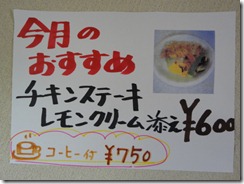 今月の
おすすめ
チキンステーキ
レモンクリーム添え ¥600
コーヒー付 ¥750